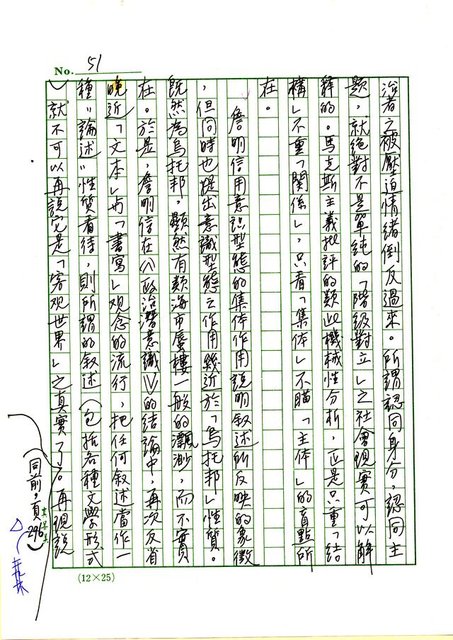 No. 51
治者之被壓迫情緒倒反過來。所謂認同身分，認同主
題，就絕對不是單純的「階級對立」之社會現實可以解
釋的。馬克斯主義批評的類此機械性分析，正是只重「結
構」不重「關係」，只看「集体」不瞄「主体」的盲點所
在。
詹明信用意識型態的集体作用說明叙述所反映的象徵
，但同時也提出意識型態之作用幾近於「烏托邦」性質。
既然為烏托邦，顯然有類海市蜃樓一般的灝渺，而不實
在。於是，詹明信在《政治潛意識》的結論中，再次反省
晚近「文本」與「書寫」觀念的流行，把任何叙述當作一
種"論述"性質看待，則所謂的叙述（包括各種文學形式
）就不可以再說它是「客观世界」之真實了。再現說
（同前，頁296）
(12×25)